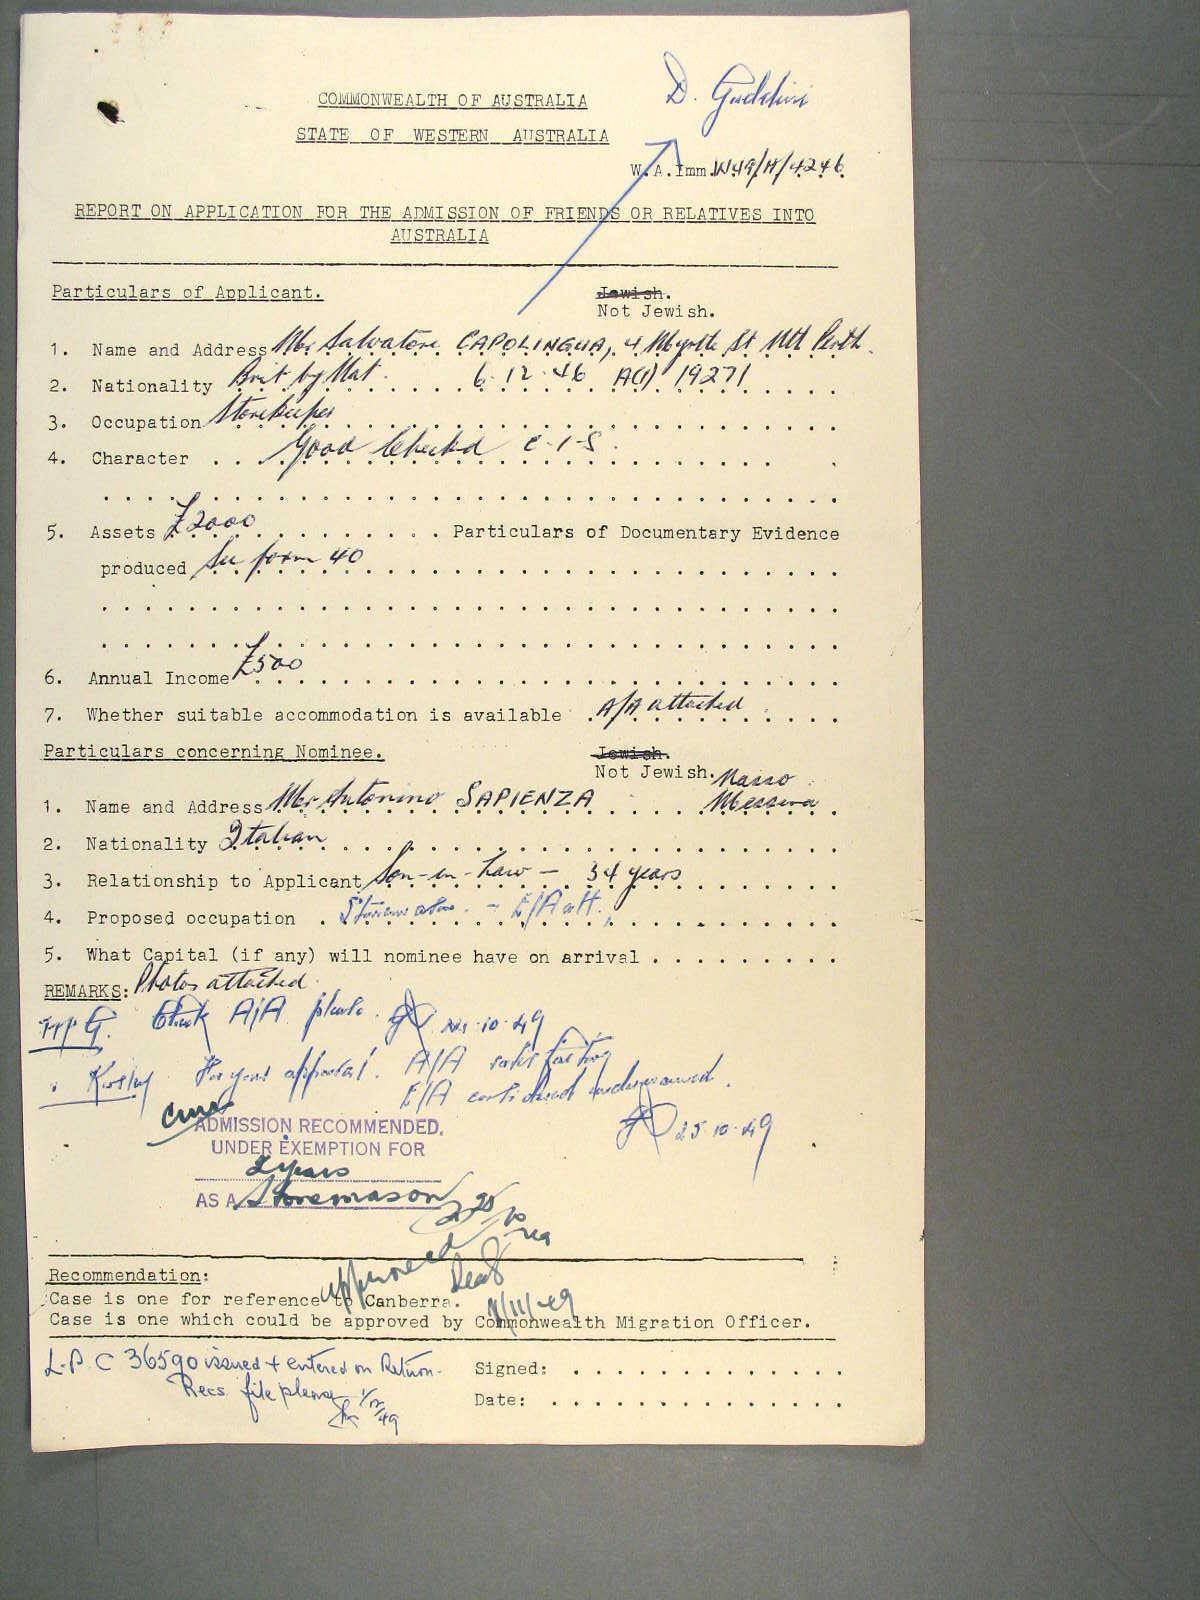 COMMONWEALTH OF AUSTRALIA
STATE OF WESTERN AUSTRALIA
D.
W.A.Imm.W49/H/4246.
REPORT ON APPLICATION FOR THE ADMISSION OF FRIENDS OR RELATIVES INTO
AUSTRALIA
Particulars of Applicant.
Jewish.
Not Jewish.
1. Name and Address Mr Salvatore CAPOLINGUA, 4 Myrtle St Nth Perth.
2. Nationality Brit by Nat. 6.12.46 A(1) 19271
3. Occupation Storekeeper
4. Character Good Checked C.I.S.
5. Assets £2000 Particulars of Documentary Evidence
produced See form 40
6. Annual Income £500
7. Whether suitable accommodation is available A/A attached
Particulars concerning Nominee.
Jewish.
Not Jewish. Nasso
1. Name and Address Mr Antonino SAPIENZA Messina
2. Nationality Italian
3. Relationship to Applicant Son-in-Law — 34 years
4. Proposed occupation Stonemason. - E/A att.
5. What Capital (if any) will nominee have on arrival
REMARKS: Photos attached
Check A/A please. 10.49
For your approval. A/A satisfactory
E/A considered
25.10.49
ADMISSION RECOMMENDED.
UNDER EXEMPTION FOR
2 years
AS A Stonemason
25/10/49
approved
Recommendation:
Case is one for reference to Canberra.
/11/49
Case is one which could be approved by Commonwealth Migration Officer.
L.P.C 36590 issued + entered on Return.
Signed:
Recs. file please
1/12/49
Date: